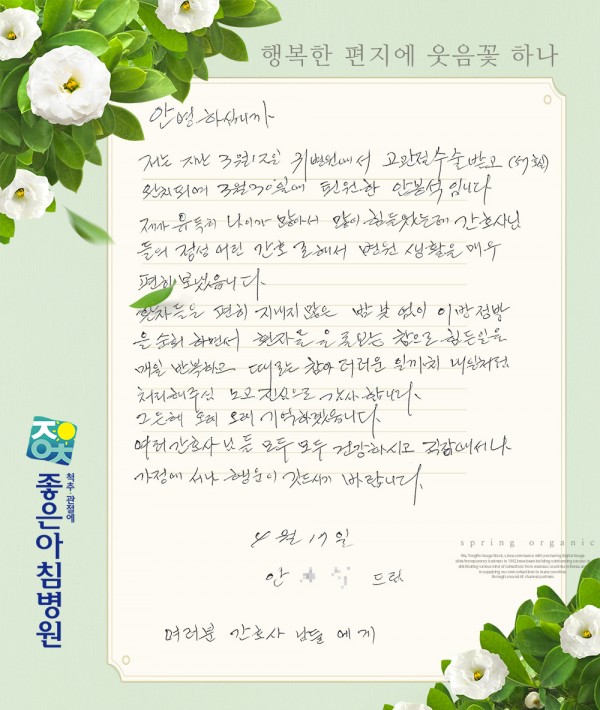 행복한 편지에 웃음꽃 하나
안녕하십니까
저는 지난 3월12일 귀병원에서 고관절수술받고
완치되여 3월30일에 퇴원한 안봉석입니다
제가 유독히 나이가 많아서 많이 힘들었는데 간호사님
들의 정성어린 간호 로해서 병원 생활을 매우
편히 보냈읍니다.
환자들을 편히 지내지많은 밤 낮 없이 이방 저방
을 순회 하면서 환자들을 돌보는 참으로 힘든일을
매일 반복하고 때로는 참아 더러운 일까지 내일처럼
처리해주심 보고 진심으로 감사 합니다.
그은혜 오래 오래 기억하겠읍니다.
여러간호사님들 모두 모두 건강하시고 직장에서나
가정에서나 행운이 깃드시기 바랍니다.
4월 17일
안 드림
여러분 간호사 님들 에게
척추·관절에
좋은아침병원
spring organic